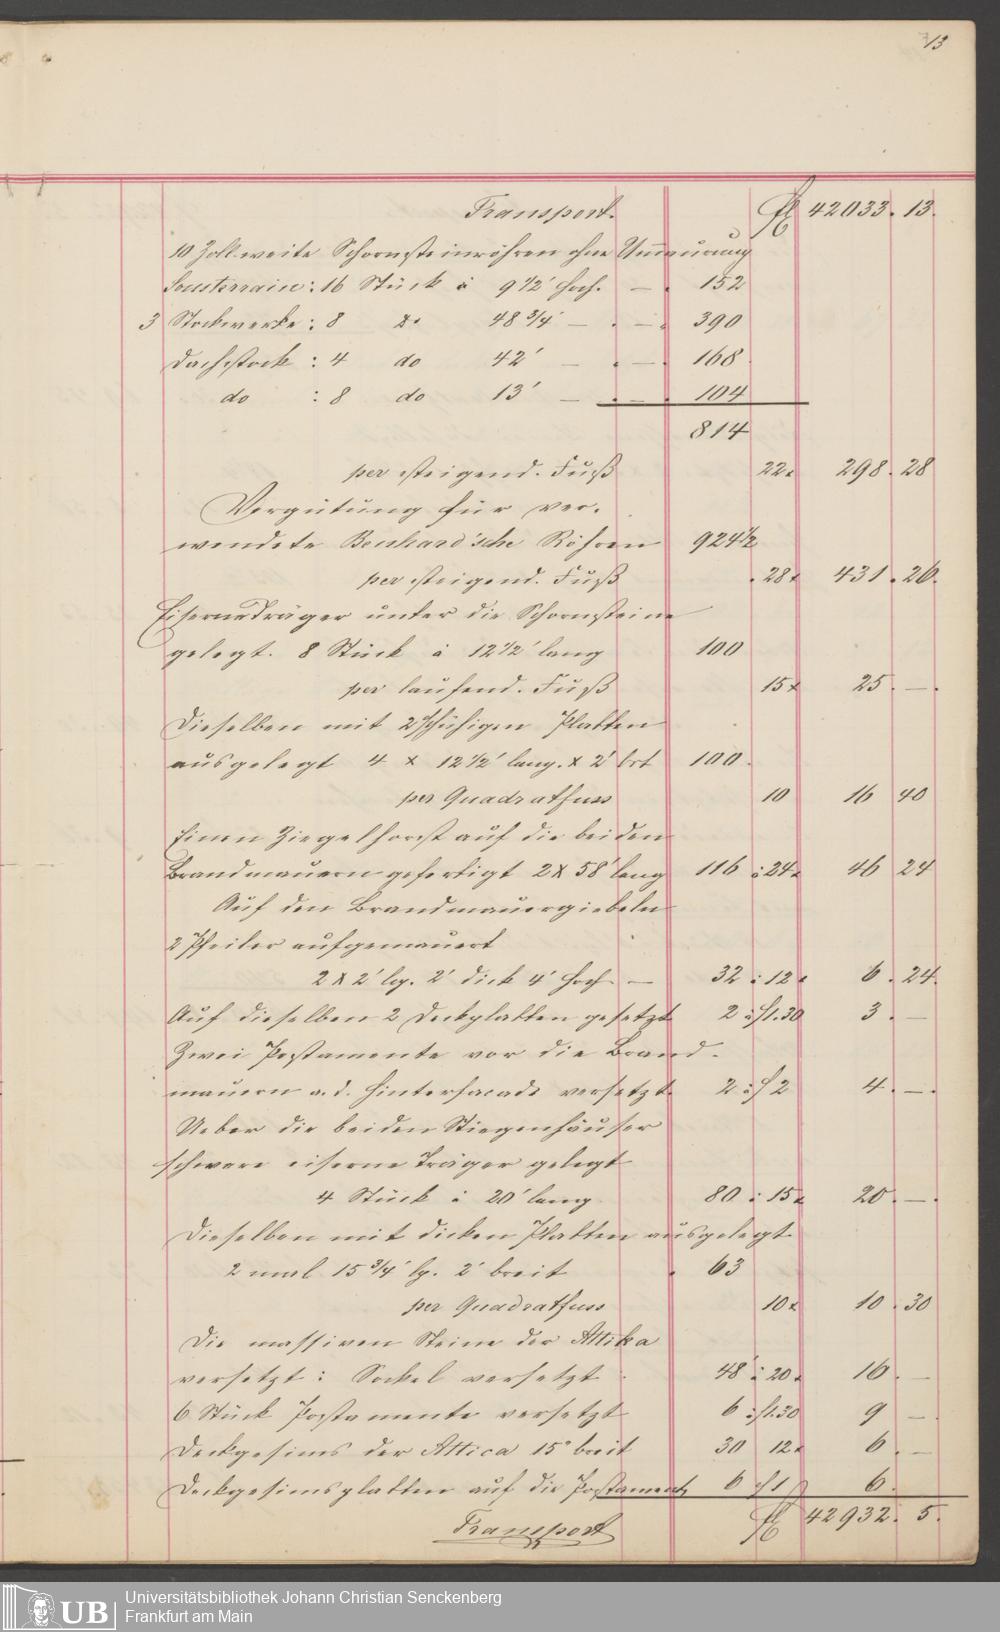 13
Transport. fl 42033. 13.
10 Zoll weite Schornsteinröhren ohne Ummaurung
Sousterrain: 16 Stück à 9 1/2' hoch. — . 152
3 Stockwerke: 8 do 48 3/4' — . — . 390
Dachstock: 4 do 42' — . — . 168
do : 8 do 13' — . — . 104
814
per steigend. Fuß 22x 298. 28
Vergütung für ver-
wendete Röhren 924 1/2
per steigend. Fuß 28x 431. 26.
Eiserne Träger unter die Schornsteine
gelegt. 8 Stück à 12 1/2' lang 100
per laufend. Fuß 15x 25. —.
Dieselben mit 2 schuhigen Platten
ausgelegt 4 x 12 1/2' lang. x 2' brt 100.
per Quadratfuss 10 16 40
Einen Ziegelforst auf die beiden
Brandmauern gefertigt 2 x 58' lang 116 à 24x 46 24
Auf den Brandmauergiebeln
2 Pfeiler aufgemauert
2 x 2' lg. 2' dick 4' hoch — 32 à 12x 6. 24.
Auf dieselben 2 Deckplatten gesetzt 2 à f1.30 3. —
Zwei Postamente vor die Brand-
mauern a. d. Hinterfacade versetzt. 2 à f 2 4. —.
Ueber die beiden Stiegenhäuser
schwere eiserne Träger gelegt
4 Stück à 20' lang 80 à 15x 20. —.
Dieselben mit dicken Platten ausgelegt
2 mal 15 3/4' lg. 2' breit . 63
per Quadratfuss 10x 10. 30
Die massiven Steine der Attika
versetzt: Sockel versetzt 48' à 20x 16. —
6 Stück Postamente versetzt 6 à f1.30 9 —
Deckgesims der Attica 15" breit 30 12x 6. —
Deckgesimsplatten auf die Postament 6 f 1 6.
Transport fl 42932. 5.
Universitätsbibliothek Johann Christian Senckenberg
Frankfurt am Main
UB